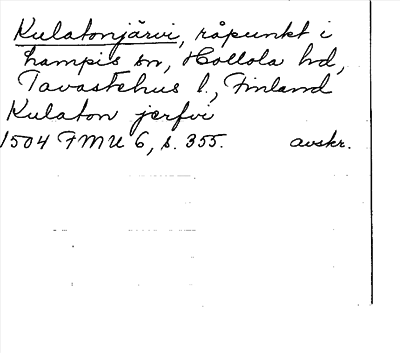 Kulatonjärvi, råpunkt i
hampis sn, Hollola hd,
Tavastehus l., Finland
Kulaton jerfvi
1504 FMU 6, s. 355. avskr.